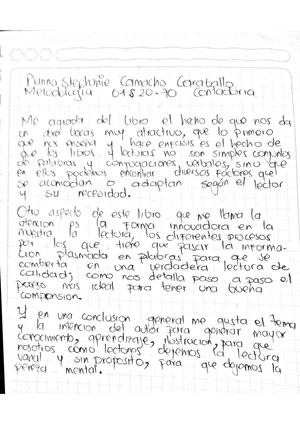 Danna Stephanie Camacho Caraballo
Metodologia 01820-70 Contaduria
Me agrada del libro el hecho de que nos da
un abre bocas muy atractivo, que lo primero
que nos enseña y hace enfasis es el hecho de
que los libros y lecturas no son simples conjuntos
de palabras y conjugaciones verbales, sino que
en ellos podemos encontrar diversos factores que
se acomodan o adaptan según el lector
y su necesidad.
Otro aspecto de este libro que me llama la
atencion es la forma innovadora en la
muestra la lectura, los diferentes procesos
por los que tiene que pasar la informa-
cion plasmada en palabras para que se
combierta en una verdadera lectura de
calidad; como nos detalla paso a paso el
proceso mas ideal para tener una buena
compension.
Y en una conclusion general me gusta el tema
y la intencion del autor para generar mayor
conocimiento, aprendizaje, ilustracion, para que
nosotros como lectores dejemos la lectura
vanal y sin proposito, para que dejemos la
pereza mental.